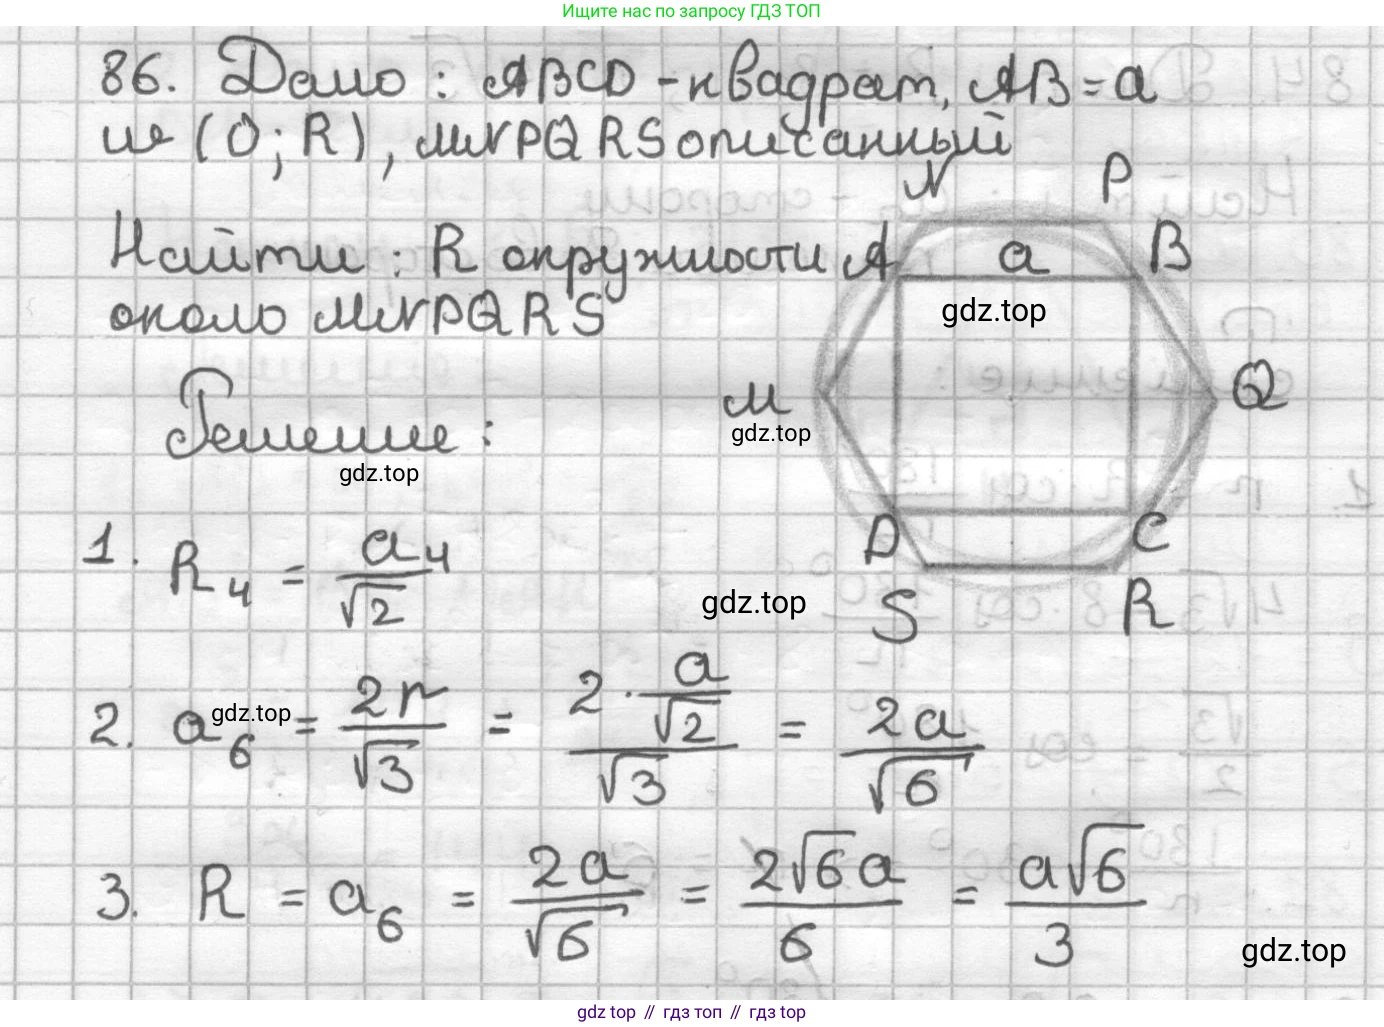 Ищите нас по запросу ГДЗ ТОП
86. Дано: ABCD - квадрат, AB = a
(O; R), MNPQRS описанный
N P
Найти: R окружности A a B
около MNPQRS
gdz.top
M Q
gdz.top
Решение:
gdz.top
D C
S R
1. R₄ = a₄/√2
gdz.top
2. a₆ = 2r/√3 = (2 · a/√2)/√3 = 2a/√6
gdz.top
3. R = a₆ = 2a/√6 = 2√6a/6 = a√6/3
gdz.top
gdz.top // гдз топ // гдз top